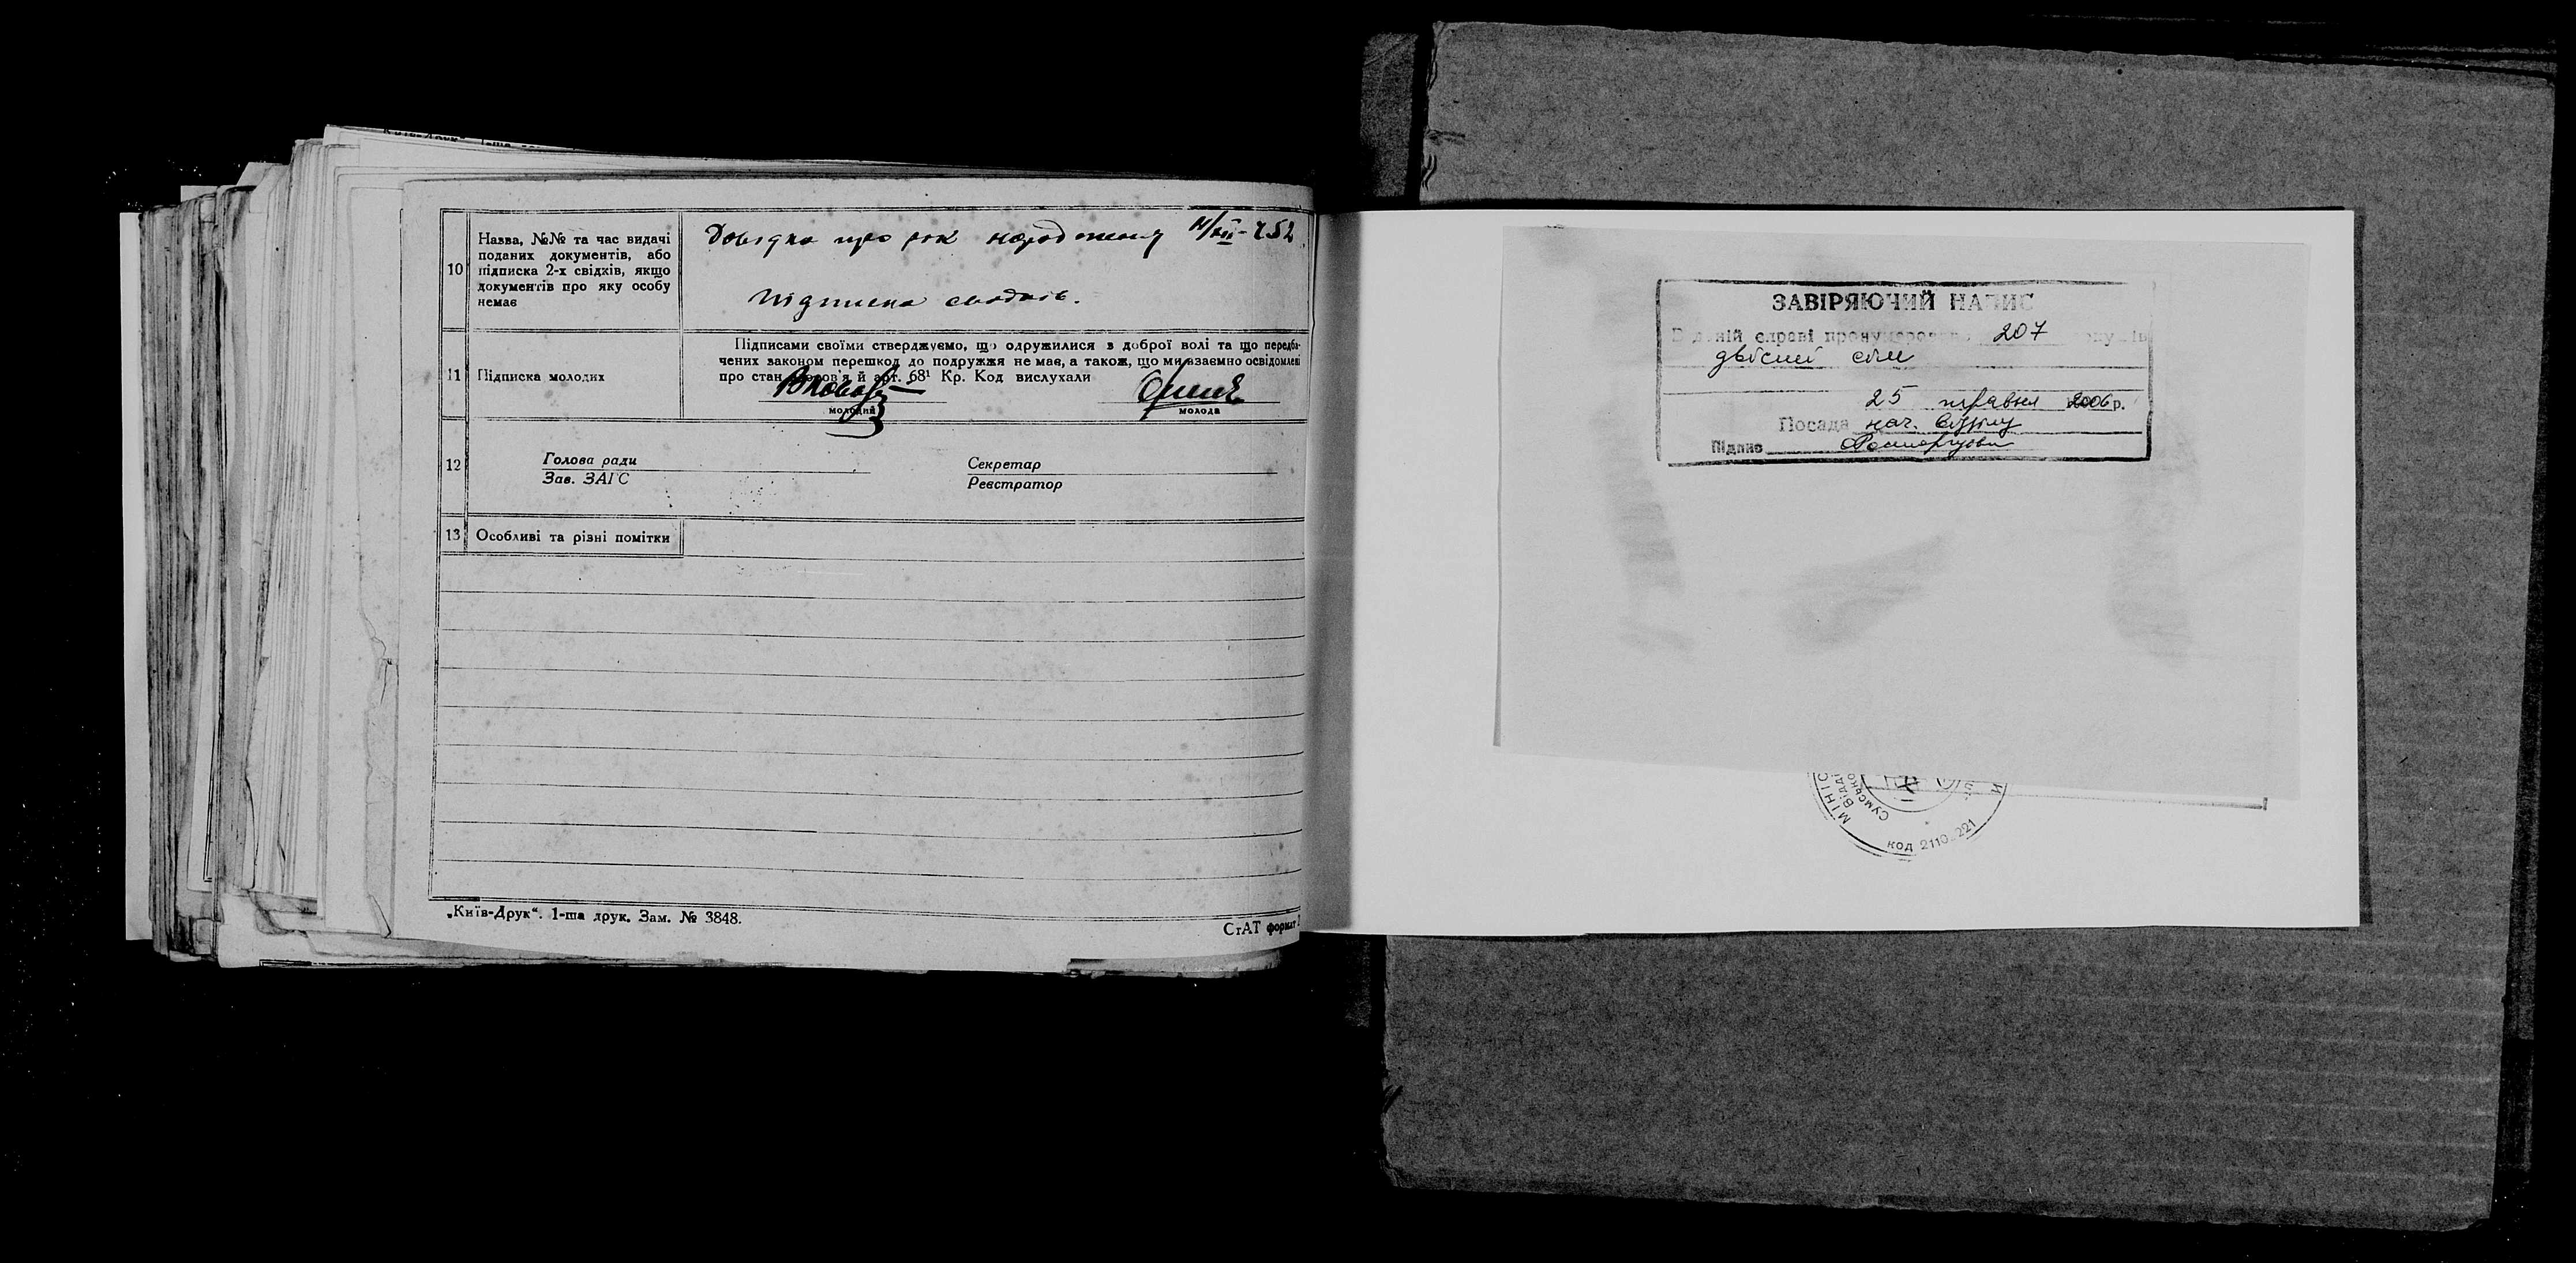 10
Назва, №№ та час видачі
поданих документів, або
підписка 2-х свідків, якщо
документів про яку особу
немає
Довідка про рок народження
Підписка свідків.
11
Підписка молодих
Підписами своїми стверджуємо, що одружилися в доброї волі та що передба-
чених законом перешкод до подружжя не має, а також, що ми взаємно освідомлені
про стан здоров'я й арт. 68¹ Кр. Код вислухали
молодий
молода
12
Голова ради
Зав. ЗАГС
Секретар
Реєстратор
13
Особливі та різні помітки
„Київ-Друк“. 1-ша друк. Зам. № 3848.
СтАТ формат
ЗАВІРЯЮЧИЙ НАПИС
В даній справі пронумеровано 207
двісті сім
25 травня 2006 р.
Посада нач. відділу
Підпис
код 2110 221